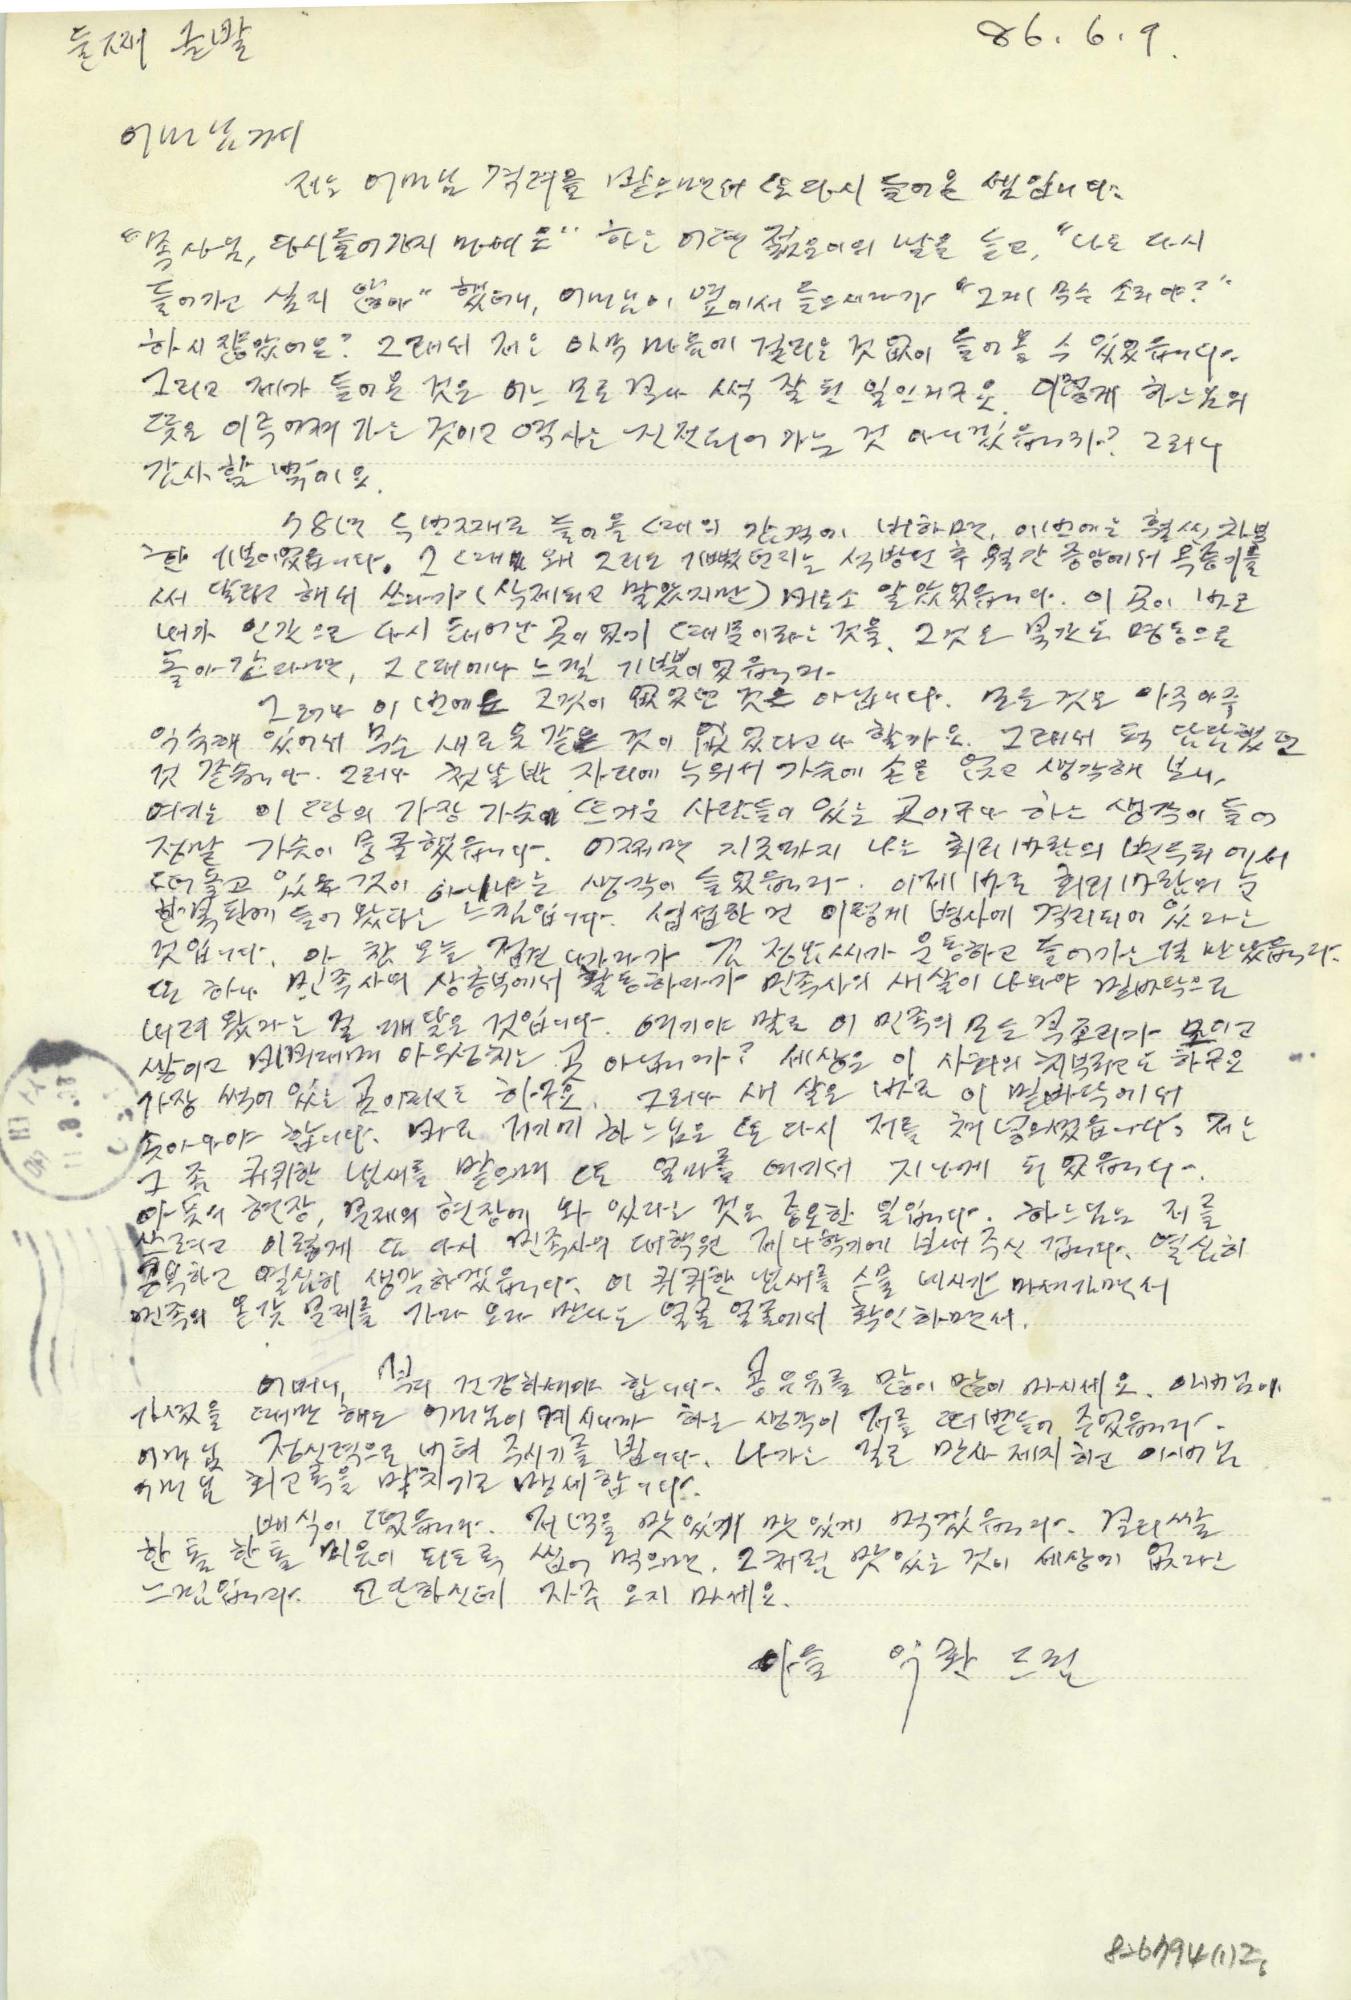 둘째 글발
86. 6. 9.
어머님께
저는 어머님 격려를 받으면서 또 다시 들어온 셈입니다.
"목사님, 다시 들어가지 마세요" 하는 어떤 젊은이의 말을 듣고, "나도 다시
들어가고 싶지 않아" 했더니, 어머님이 옆에서 들으시다가 "그게 무슨 소리야?"
하시잖았어요? 그래서 저는 아무 마음에 걸리는 것 없이 들어올 수 있었습니다.
그리고 제가 들어온 것은 어느 모로 보나 썩 잘 된 일인거구요. 이렇게 하느님의
뜻은 이루어져 가는 것이고 역사는 진전되어 가는 것 아니겠습니까? 그러니
감사할 밖에요.
78년 두번째로 들어올 때의 감격에 비하면, 이번에는 훨씬 차분
한 기분이었습니다. 그 때 왜 그리도 기뻤던지는 석방된 후 월간 중앙에서 옥중기를
써 달라고 해서 쓰다가 (삭제되고 말았지만) 비로소 알았었습니다. 이 곳이 바로
내가 인간으로 다시 태어난 곳이었기 때문이라는 것을. 그것은 북간도 명동으로
돌아간다면, 그 때에나 느낄 기분이었습니다.
그러나 이번에도 그것이 없었던 것은 아닙니다. 모든 것은 아주 아주
익숙해 있어서 무슨 새로운 같은 것이 없었다고나 할까요. 그래서 퍽 담담했던
것 같습니다. 그러나 첫날 밤 자리에 누워서 가슴에 손을 얹고 생각해 보니,
여기는 이 땅의 가장 가슴이 뜨거운 사람들이 있는 곳이구나 하는 생각이 들어
정말 가슴이 뭉클했습니다. 어쩌면 지금까지 나는 회리바람의 변두리에서
떠돌고 있는 것이 아니냐는 생각이 들었습니다. 이제 바로 회리바람의 눈
한복판에 들어 왔다는 느낌입니다. 섭섭한 건 이렇게 병사에 격리되어 있다는
것입니다. 아 참 오늘 접견 나가다가 김 씨가 운동하고 들어가는 걸 만났습니다.
또 하나 민족사의 상층부에서 활동하다가 민족사의 새살이 나와야 밑바닥으로
내려 왔다는 걸 깨달은 것입니다. 여기야 말로 이 민족의 모든 가 모이고
쌓이고 아우성치는 곳 아닙니까? 세상은 이 사회의 치부라고도 하구요
가장 썩어 있는 곳이라고도 하구요. 그러나 새 살은 바로 이 밑바닥에서
솟아나야 합니다. 바로 거기에 하느님은 또 다시 저를 쳐 넣으셨습니다. 저는
그 좀 퀴퀴한 냄새를 맡으며 또 얼마를 여기서 지나게 되었습니다.
아픔의 현장, 문제의 현장에 와 있다는 것은 중요한 일입니다. 하느님은 저를
쓰려고 이렇게 또 다시 민족사의 대학원 제 학기에 보내 주신 겁니다. 열심히
공부하고 열심히 생각하겠습니다. 이 퀴퀴한 냄새를 스물 네시간 마셔가면서
민족의 온갖 문제를 가다 오다 만나는 얼굴 얼굴에서 확인하면서.
어머니, 꼭 건강하셔야 합니다. 콩우유를 많이 많이 마시세요. 아버님이
가셨을 때만 해도 어머님이 계시니까 하는 생각이 저를 떠받들어 주었습니다.
어머님 정신력으로 버텨 주시기를 빕니다. 나가는 길로 만사 제지하고 아버님
어머님 회고록을 마치기로 맹세합니다.
배식이 떴습니다. 저녁을 맛있게 맛있게 먹겠습니다. 보리쌀
한 톨 한톨 미음이 되도록 씹어 먹으면, 그처럼 맛있는 것이 세상에 없다는
느낌입니다. 고단하신데 자주 오지 마세요.
아들 익환 드림